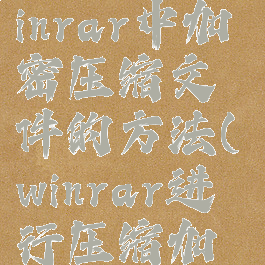 inrar中加
密压缩文
件的方法(
winrar进
行压缩加